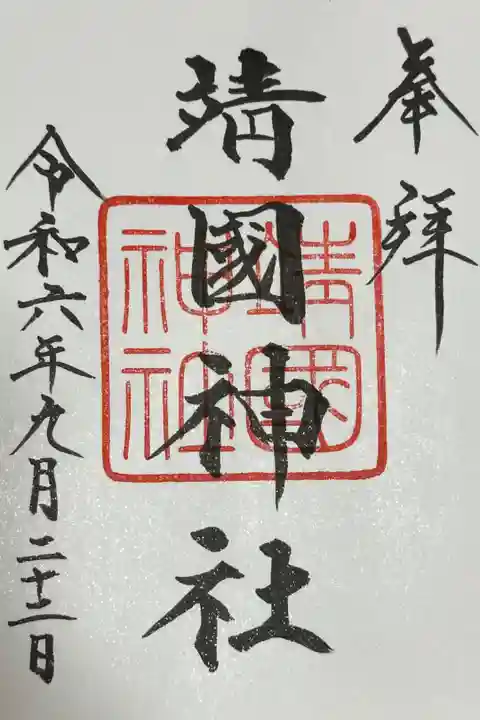 奉拜
靖國神社
靖國
神社
令和六年九月二十二日